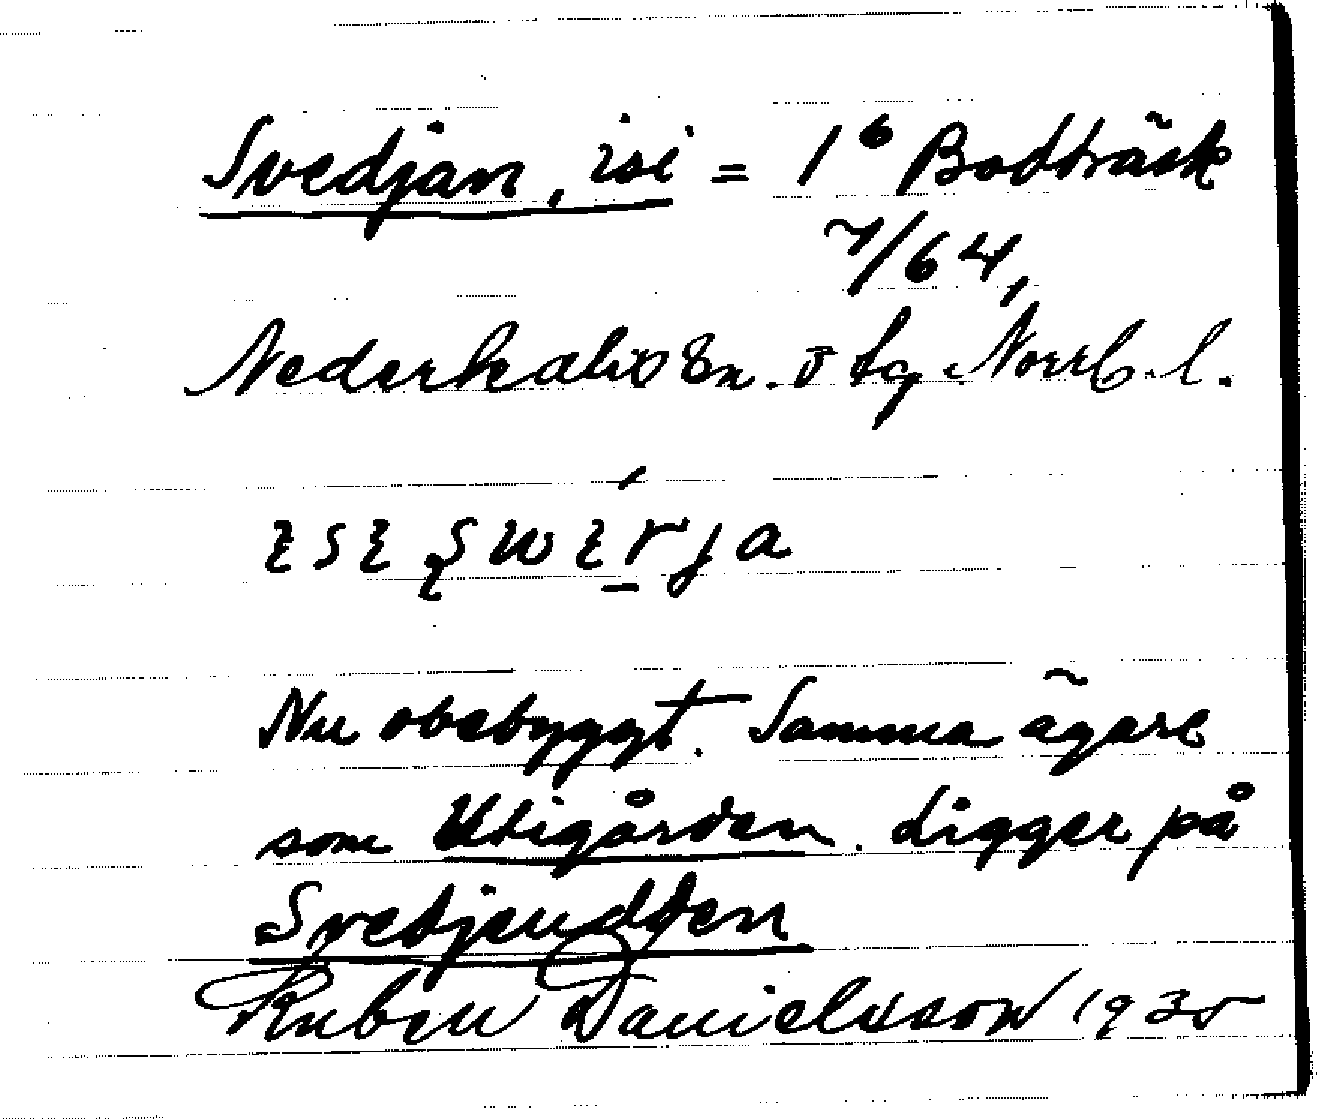 Svedjan, isi = 1⁶ Bodträsk
7/64,
Nederkalix sn. ö tg Norrb. l.
Nu obebyggt. Samma ägare
som Utigården. Ligger på
Svedjeudden
Ruben Danielsson 1935